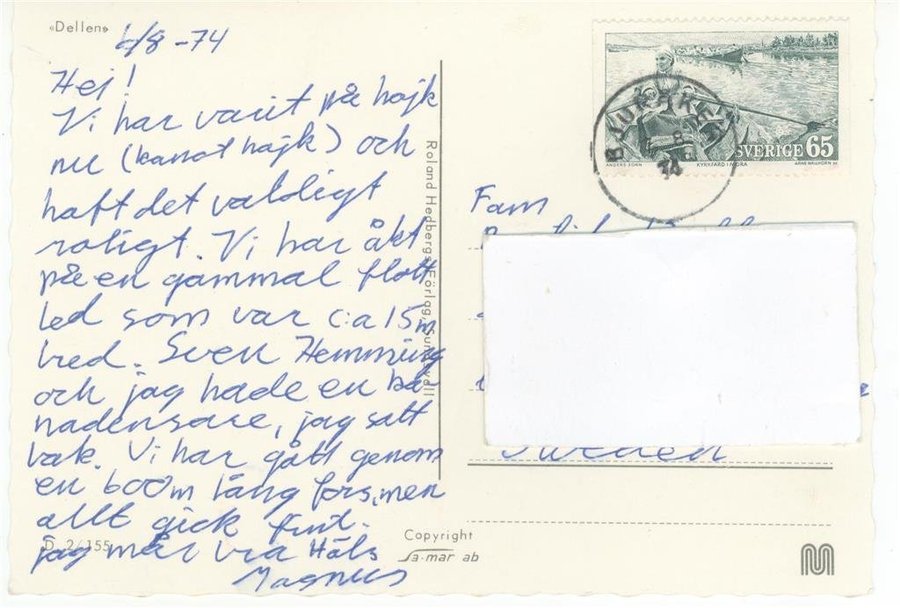 «Dellen»
6/8 -74
Hej!
Vi har varit på hajk
nu (kanothajk) och
haft det väldigt
roligt. Vi har åkt
på en gammal flott
led som var c:a 15m
bred. Sven Hemming
och jag hade en ka
nadensare, jag satt
bak. Vi har gått genom
en 600m lång fors, men
allt gick fint.
jag mår bra Häls
Magnus
D. 2/155
Roland Hedbergs Förlag, Sundsvall
Copyright
sa-mar ab
SVERIGE 65
ANDERS ZORN
KYRKFÄRD I MORA
74
Fam
Sweden
M